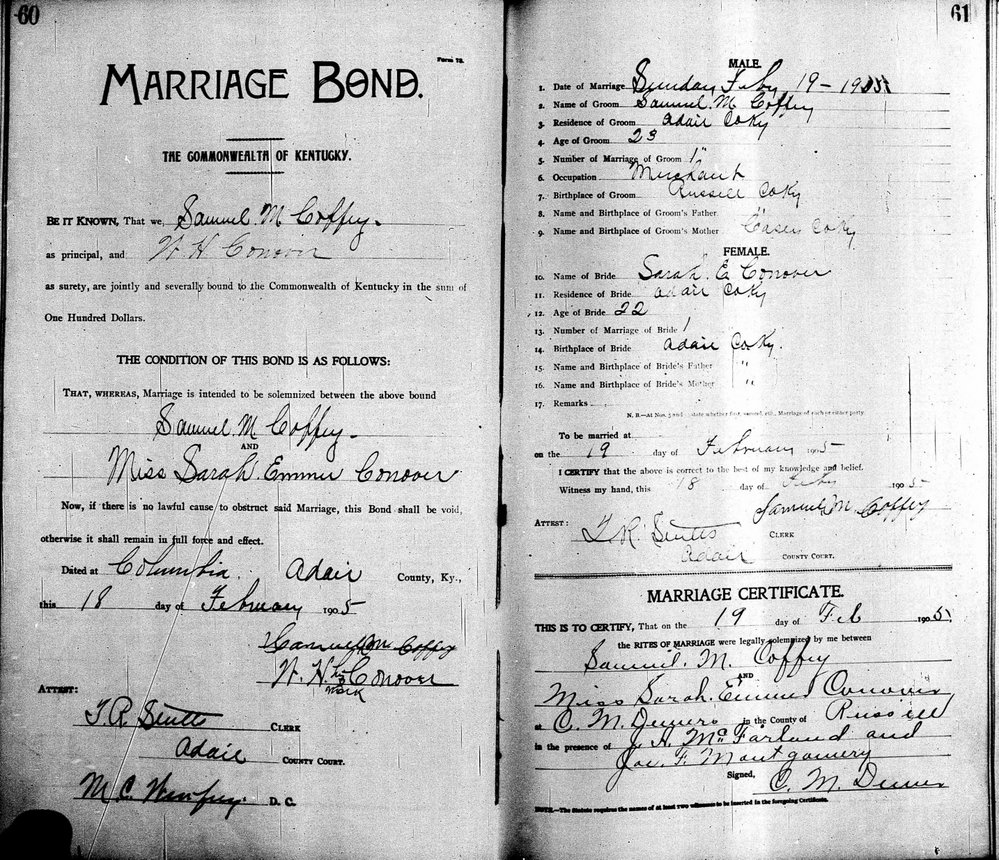 60
Form 73.
MARRIAGE BOND.
THE COMMONWEALTH OF KENTUCKY.
BE IT KNOWN, That we, Samuel M Coffey
as principal, and W H Conover
as surety, are jointly and severally bound to the Commonwealth of Kentucky in the sum of
One Hundred Dollars.
THE CONDITION OF THIS BOND IS AS FOLLOWS:
THAT, WHEREAS, Marriage is intended to be solemnized between the above bound
Samuel M Coffey
AND
Miss Sarah Emmer Conover
Now, if there is no lawful cause to obstruct said Marriage, this Bond shall be void,
otherwise it shall remain in full force and effect.
Dated at Columbia Adair County, Ky.,
this 18 day of February 1905
Samuel M Coffey
W. H. his x mark Conover
ATTEST:
T R Stults CLERK
Adair COUNTY COURT.
M. C. Winfrey D. C.
61
MALE.
1. Date of Marriage Sunday Feby 19 - 1905
2. Name of Groom Samuel M Coffey
3. Residence of Groom Adair Co Ky
4. Age of Groom 23
5. Number of Marriage of Groom 1"
6. Occupation Merchant
7. Birthplace of Groom Russell Co Ky
8. Name and Birthplace of Groom's Father "
9. Name and Birthplace of Groom's Mother Casey Co Ky
FEMALE.
10. Name of Bride Sarah E Conover
11. Residence of Bride Adair Co Ky
12. Age of Bride 22
13. Number of Marriage of Bride 1
14. Birthplace of Bride Adair Co Ky.
15. Name and Birthplace of Bride's Father "
16. Name and Birthplace of Bride's Mother "
17. Remarks
N. B.—At Nos. 5 and state whether first, second, etc., Marriage of each or either party.
To be married at
on the 19 day of February 1905
I CERTIFY that the above is correct to the best of my knowledge and belief.
Witness my hand, this 18 day of Feby 1905
Samuel M. Coffey
ATTEST:
T R Stults CLERK
Adair COUNTY COURT.
MARRIAGE CERTIFICATE.
THIS IS TO CERTIFY, That on the 19 day of Feb 1905
the RITES OF MARRIAGE were legally solemnized by me between
Samuel M. Coffey
AND
Miss Sarah Emmer Conover
at C. M. Deners in the County of Russell
in the presence of J. A. McFarland and
Joe. F. Montgomery
Signed, C. M. Dener
NOTE.—The Statute requires the names of at least two witnesses to be inserted in the foregoing Certificate.